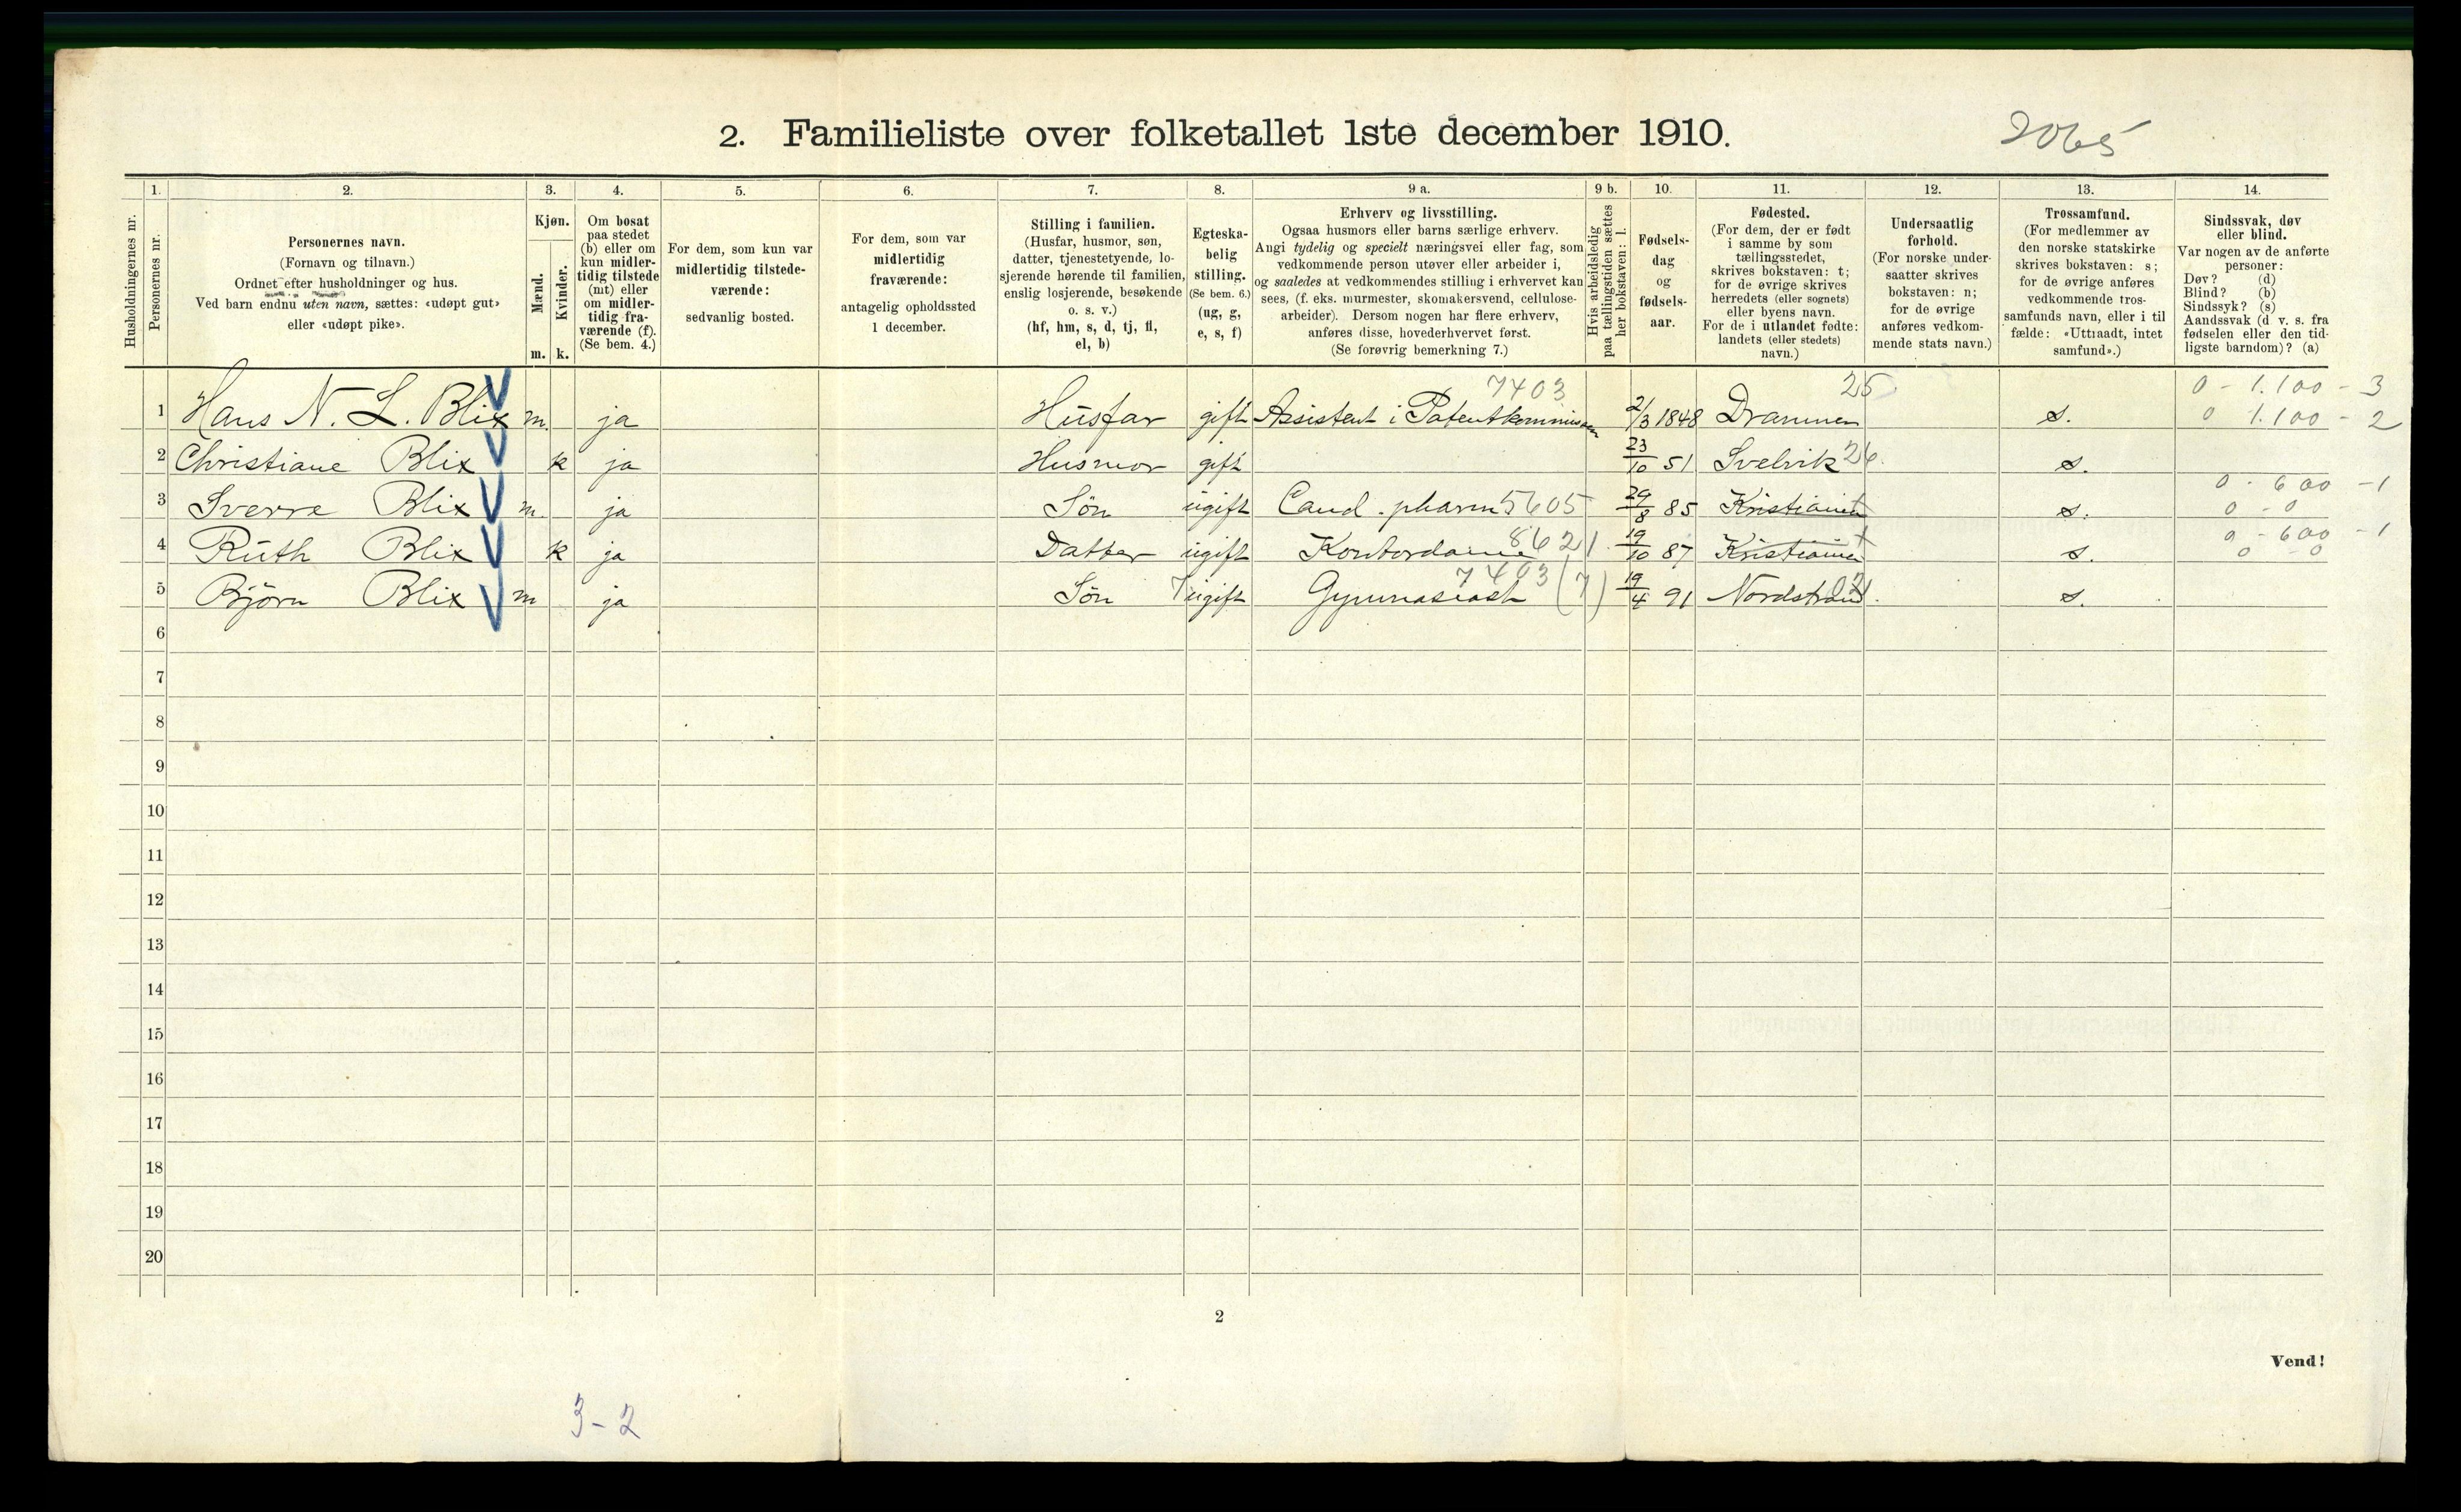 2. Familieliste over folketallet 1ste december 1910.
2065
1. 2. 3. 4. 5. 6. 7. 8. 9 a. 9 b. 10. 11. 12. 13. 14.
Husholdningernes nr.
Personernes nr.
Personernes navn.
(Fornavn og tilnavn.)
Ordnet efter husholdninger og hus.
Ved barn endnu uten navn, sættes: «udøpt gut»
eller «udøpt pike».
Kjøn.
Mænd.
Kvinder.
m. k.
Om bosat
paa stedet
(b) eller om
kun midler-
tidig tilstede
(mt) eller
om midler-
tidig fra-
værende (f).
(Se bem. 4.)
For dem, som kun var
midlertidig tilstede-
værende:
sedvanlig bosted.
For dem, som var
midlertidig
fraværende:
antagelig opholdssted
1 december.
Stilling i familien.
(Husfar, husmor, søn,
datter, tjenestetyende, lo-
sjerende hørende til familien,
enslig losjerende, besøkende
o. s. v.)
(hf, hm, s, d, tj, fl,
el, b)
Egteska-
belig
stilling.
(Se bem. 6.)
(ug, g,
e, s, f)
Erhverv og livsstilling.
Ogsaa husmors eller barns særlige erhverv.
Angi tydelig og specielt næringsvei eller fag, som
vedkommende person utøver eller arbeider i,
og saaledes at vedkommendes stilling i erhvervet kan
sees, (f. eks. murmester, skomakersvend, cellulose-
arbeider). Dersom nogen har flere erhverv,
anføres disse, hovederhvervet først.
(Se forøvrig bemerkning 7.)
Hvis arbeidsledig
paa tællingstiden sættes
her bokstaven: l.
Fødsels-
dag
og
fødsels-
aar.
Fødested.
(For dem, der er født
i samme by som
tællingsstedet,
skrives bokstaven: t;
for de øvrige skrives
herredets (eller sognets)
eller byens navn.
For de i utlandet fødte:
landets (eller stedets)
navn.)
Undersaatlig
forhold.
(For norske under-
saatter skrives
bokstaven: n;
for de øvrige
anføres vedkom-
mende stats navn.)
Trossamfund.
(For medlemmer av
den norske statskirke
skrives bokstaven: s;
for de øvrige anføres
vedkommende tros-
samfunds navn, eller i til
fælde: «Uttraadt, intet
samfund».)
Sindssvak, døv
eller blind.
Var nogen av de anførte
personer:
Døv? (d)
Blind? (b)
Sindssyk? (s)
Aandssvak (d v. s. fra
fødselen eller den tid-
ligste barndom)? (a)
7403 25 0 - 1.100 - 3
1 Hans N. L. Blix m. ja Husfar gift Assistent i Patentkommissionen 2/3 1848 Drammen s. 0 1.100 - 2
2 Christiane Blix k ja Husmor gift 23/10 51 Svelvik 26. s.
0 - 600 - 1
3 Sverre Blix m. ja Søn ugift Cand. pharm 5605 29/8 85 Kristiania t s. 0 - 0
0 - 600 - 1
4 Ruth Blix k ja Datter ugift Kontordame 8621. 19/10 87 Kristiania t s. 0 - 0
7403 (7)
5 Bjørn Blix m ja Søn ugift Gymnasiast 19/4 91 Nordstrand s.
6
7
8
9
10
11
12
13
14
15
16
17
18
19
20
2
Vend!
3 - 2